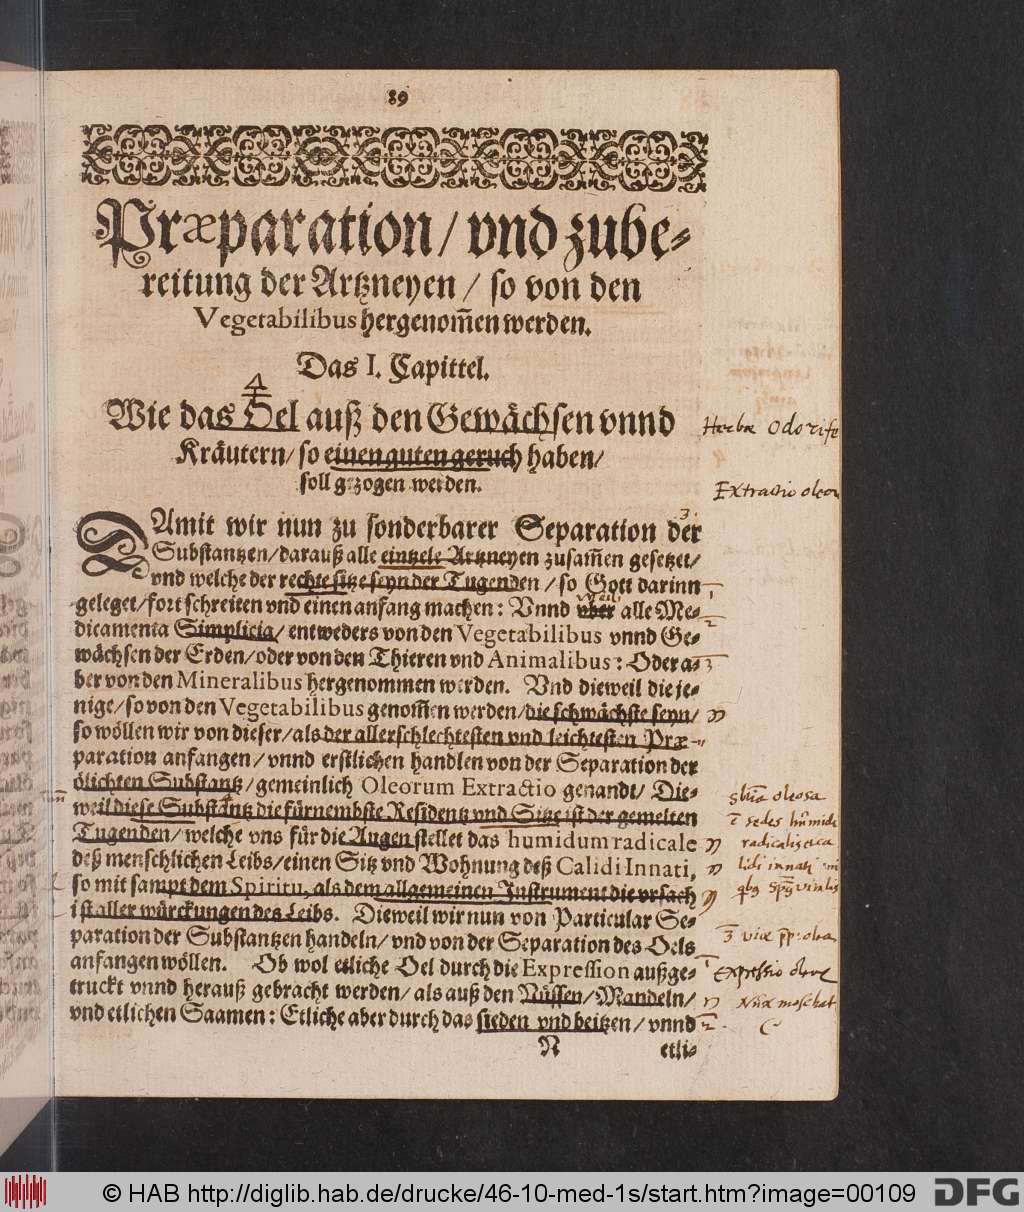 89
Præparation / vnd zube⸗
reitung der Artzneyen / so von den
Vegetabilibus hergenom̃en werden.
Das I. Capittel.
4
Wie das Oel auß den Gewächsen vnnd
Herbæ Odorife
Kräutern / so einen guten geruch haben /
soll gezogen werden.
Extractio oleor
3.
DAmit wir nun zu sonderbarer Separation der
Substantzen / darauß alle eintzele Artzneyen zusam̃en gesetzet /
vnd welche der rechte sitze seyn der Tugenden / so Gott darinn
geleget / fort schreiten vnd einen anfang machen: Vnnd vber alle Me⸗
dicamenta Simplicia / entweders von den Vegetabilibus vnnd Ge⸗
wächsen der Erden / oder von den Thieren vnd Animalibus: Oder a⸗
ber von den Mineralibus hergenommen werden. Vnd dieweil die je⸗
nige / so von den Vegetabilibus genom̃en werden / die schwächste seyn /
so wöllen wir von dieser / als der allerschlechtesten vnd leichtesten Præ⸗
paration anfangen / vnnd erstlichen handlen von der Separation der
ölichten Substantz / gemeinlich Oleorum Extractio genandt / Die⸗
weil diese Substantz die fürnembste Residentz vnd Sitze ist der gemelten
Tugenden / welche vns für die Augen stellet das humidum radicale
deß menschlichen Leibs / einen Sitz vnd Wohnung deß Calidi Innati,
so mit sampt dem Spiritu, als dem allgemeinen Instrument die vrsach
ist aller würckungen des Leibs. Dieweil wir nun von Particular Se⸗
paration der Substantzen handeln / vnd von der Separation des Oels
anfangen wöllen. Ob wol etliche Oel durch die Expression außge⸗
truckt vnnd herauß gebracht werden / als auß den Nüssen / Mandeln /
vnd etlichen Saamen: Etliche aber durch das sieden vnd beitzen / vnnd
N
etli⸗
oleosa
sedes humidi
radicalis
lidi innati
Expressio
Nux moschat
© HAB http://diglib.hab.de/drucke/46-10-med-1s/start.htm?image=00109
DFG